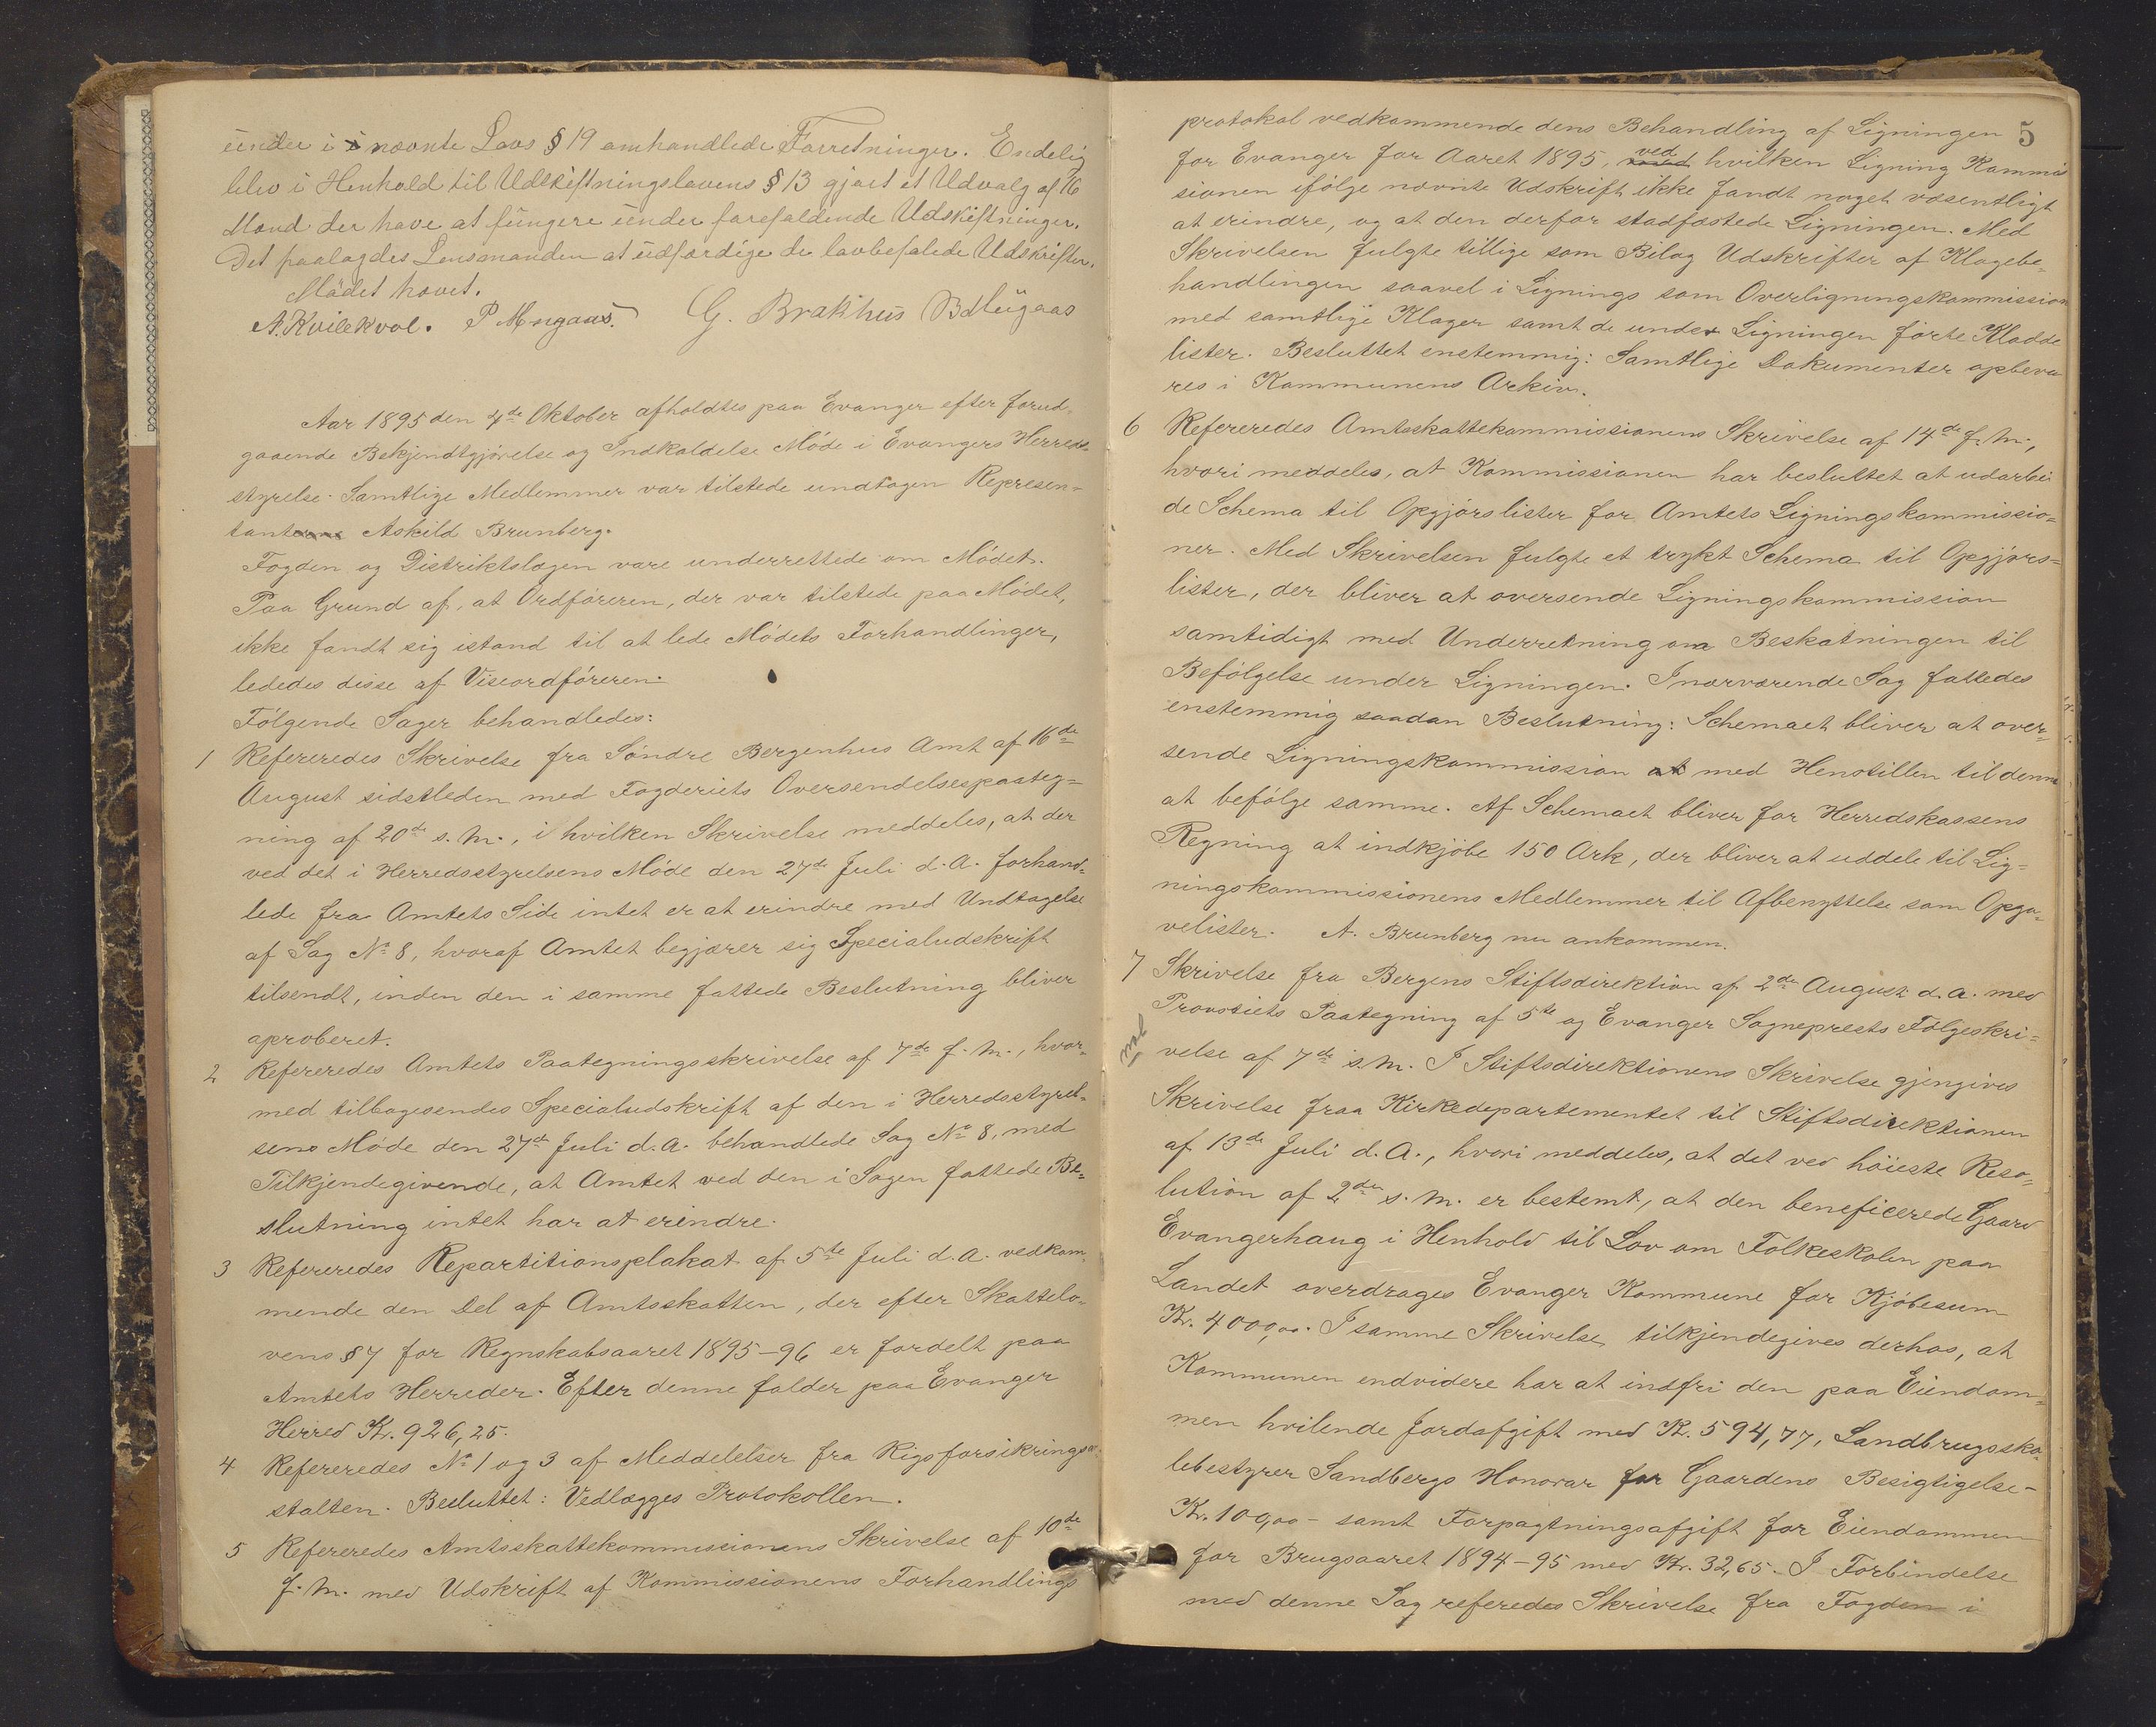 under i nævnte Lovs § 19 omhandlede Forretninger. Endelig
blev i Henhold til Udskiftningslovens § 13 gjort et Udvalg af 16
Mænd der have at fungere under forefaldende Udskiftninger.
Det paalagdes Lensmanden at udfærdige de lovbefalede Udskrifter.
Mødet hævet.
A. Kvilekval. P Mugaas. G. Brakhus
Aar 1895 den 4de Oktober afholdtes paa Evanger efter forud-
gaaende Bekjendtgjørelse og Indkaldelse Møde i Evangers Herreds-
styrelse. Samtlige Medlemmer var tilstede undtagen Represen-
tant Askild Brunberg.
Fogden og Distriktslægen vare underrettede om Mødet.
Paa Grund af, at Ordføreren, der var tilstede paa Mødet,
ikke fandt sig istand til at lede Mødets Forhandlinger,
lededes disse af Viseordføreren.
Følgende Sager behandledes:
1 Refereredes Skrivelse fra Søndre Bergenhus Amt af 16de
August sidstleden med Fogderiets Oversendelsespaateg=
ning af 20de s. M., i hvilken Skrivelse meddeles, at der
ved det i Herredsstyrelsens Møde den 27de Juli d. A. forhand-
lede fra Amtets Side intet er at erindre med Undtagelse
af Sag No 8, hvoraf Amtet begjærer sig Specialudskrift
tilsendt, inden den i samme fattede Beslutning bliver
aproberet.
2 Refereredes Amtets Paategningsskrivelse af 7de f. M., hvor-
med tilbagesendes Specialudskrift af den i Herredsstyrel-
sens Møde den 27de Juli d. A. behandlede Sag No 8, med
Tilkjendegivende, at Amtet ved den i Sagen fattede Be-
slutning intet har at erindre.
3 Refereredes Repartitionsplakat af 5te Juli d. A. vedkom-
mende den Del af Amtsskatten, der efter Skattelo-
vens § 7 for Regnskabsaaret 1895-96 er fordelt paa
Amtets Herreder. Efter denne falder paa Evanger
Herred Kr. 926,25.
4 Refereredes No 1 og 3 af Meddelelser fra Rigsforsikringsan-
stalten. Besluttet: Vedlægges Protokollen.
5 Refereredes Amtsskattekommissionens Skrivelse af 10de
f. M. med Udskrift af Kommissionens Forhandlings
5
protokol vedkommende dens Behandling af Ligningen
for Evanger for Aaret 1895, ved hvilken Ligning Kommis
sionen ifølge nævnte Udskrift ikke fandt noget væsentligt
at erindre, og at den derfor stadfæstede Ligningen. Med
Skrivelsen fulgte tillige som Bilag Udskrifter af Klagebe-
handlingen saavel i Lignings som Overligningskommission
med samtlige Klager samt de under Ligningen førte Kladde
lister. Besluttet enstemmig: Samtlige Dokumenter opbeva
res i Kommunens Arkiv.
6 Refereredes Amtsskattekommissionens Skrivelse af 14de f. M.,
hvori meddeles, at Kommissionen har besluttet at udarbei
de Schema til Opgjørslister for Amtets Ligningskommissio=
ner. Med Skrivelsen fulgte et trykt Schema til Opgjørs=
lister, der bliver at oversende Ligningskommission
samtidigt med Underretning om Beskatningen til
Befølgelse under Ligningen. I nærværende Sag fattedes
enstemmig saadan Beslutning: Schemaet bliver at over-
sende Ligningskommission med Henstillen til denne
at befølge samme. Af Schemaet bliver for Herredskassens
Regning at indkjøbe 150 Ark, der bliver at uddele til Lig=
ningskommissionens Medlemmer til Afbenyttelse som Opga-
velister. A. Brunberg nu ankommen.
7 Skrivelse fra Bergens Stiftsdirektion af 2den August d. A. med
Provstiets Paategning af 5te og Evanger Sogneprests Følgeskri-
velse af 7de s. M. I Stiftsdirektionens Skrivelse gjengives
Skrivelse fraa Kirkedepartementet til Stiftsdirektionen
af 13de Juli d. A., hvori meddeles, at det ved høieste Reso-
lution af 2den s. M. er bestemt, at den beneficerede Gaard
Evangerhaug i Henhold til Lov om Folkeskolen paa
Landet overdrages Evanger Kommune for Kjøbesum
Kr. 4000,00. I samme Skrivelse tilkjendegives derhos, at
Kommunen endvidere har at indfri den paa Eiendom-
men hvilende Jordafgift med Kr. 594,77, Landbrugssko-
lebestyrer Sandbergs Honorar for Gaardens Besigtigelse -
Kr. 100,00 - samt Forpagtningsafgift for Eiendommen
for Brugsaaret 1894-95 med Kr. 32,65. I Forbindelse
med denne Sag referedes Skrivelse fra Fogden i